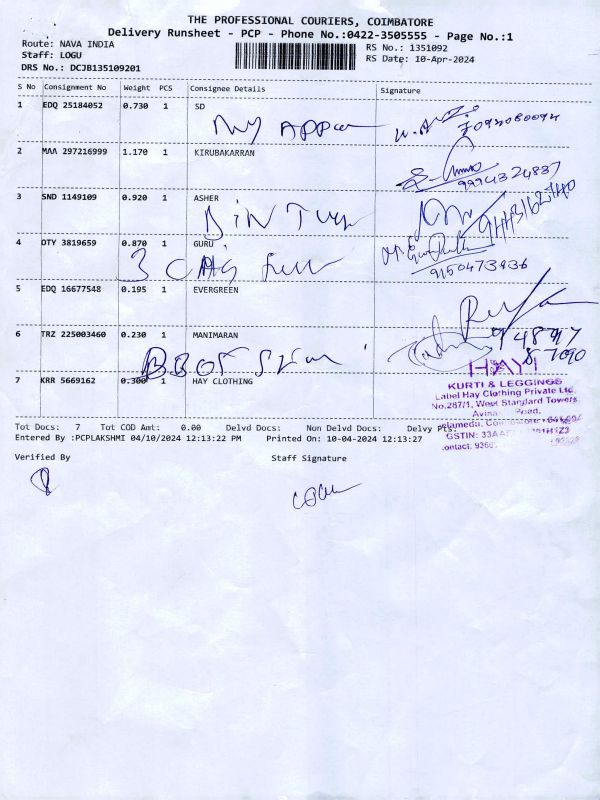 THE PROFESSIONAL COURIERS, COIMBATORE
Delivery Runsheet - PCP - Phone No.:0422-3505555 - Page No.:1
Route: NAVA INDIA
RS No.: 1351092
Staff: LOGU
RS Date: 10-Apr-2024
DRS No.: DCJB135109201
S No Consignment No Weight PCS Consignee Details Signature
1 EDQ 25184052 0.730 1 SD
2 MAA 297216999 1.170 1 KIRUBAKARRAN
9994324837
3 SND 1149109 0.920 1 ASHER
4 OTY 3819659 0.870 1 GURU
9150473936
5 EDQ 16677548 0.195 1 EVERGREEN
6 TRZ 225003460 0.230 1 MANIMARAN
7 KRR 5669162 0.300 1 HAY CLOTHING
HAY
KURTI & LEGGINGS
Label Hay Clothing Private Ltd.
No.287/1, West Standard Towers,
Road,
GSTIN:
Tot Docs: 7 Tot COD Amt: 0.00 Delvd Docs: Non Delvd Docs: Delvy Pts:
Entered By :PCPLAKSHMI 04/10/2024 12:13:22 PM Printed On: 10-04-2024 12:13:27
Verified By Staff Signature